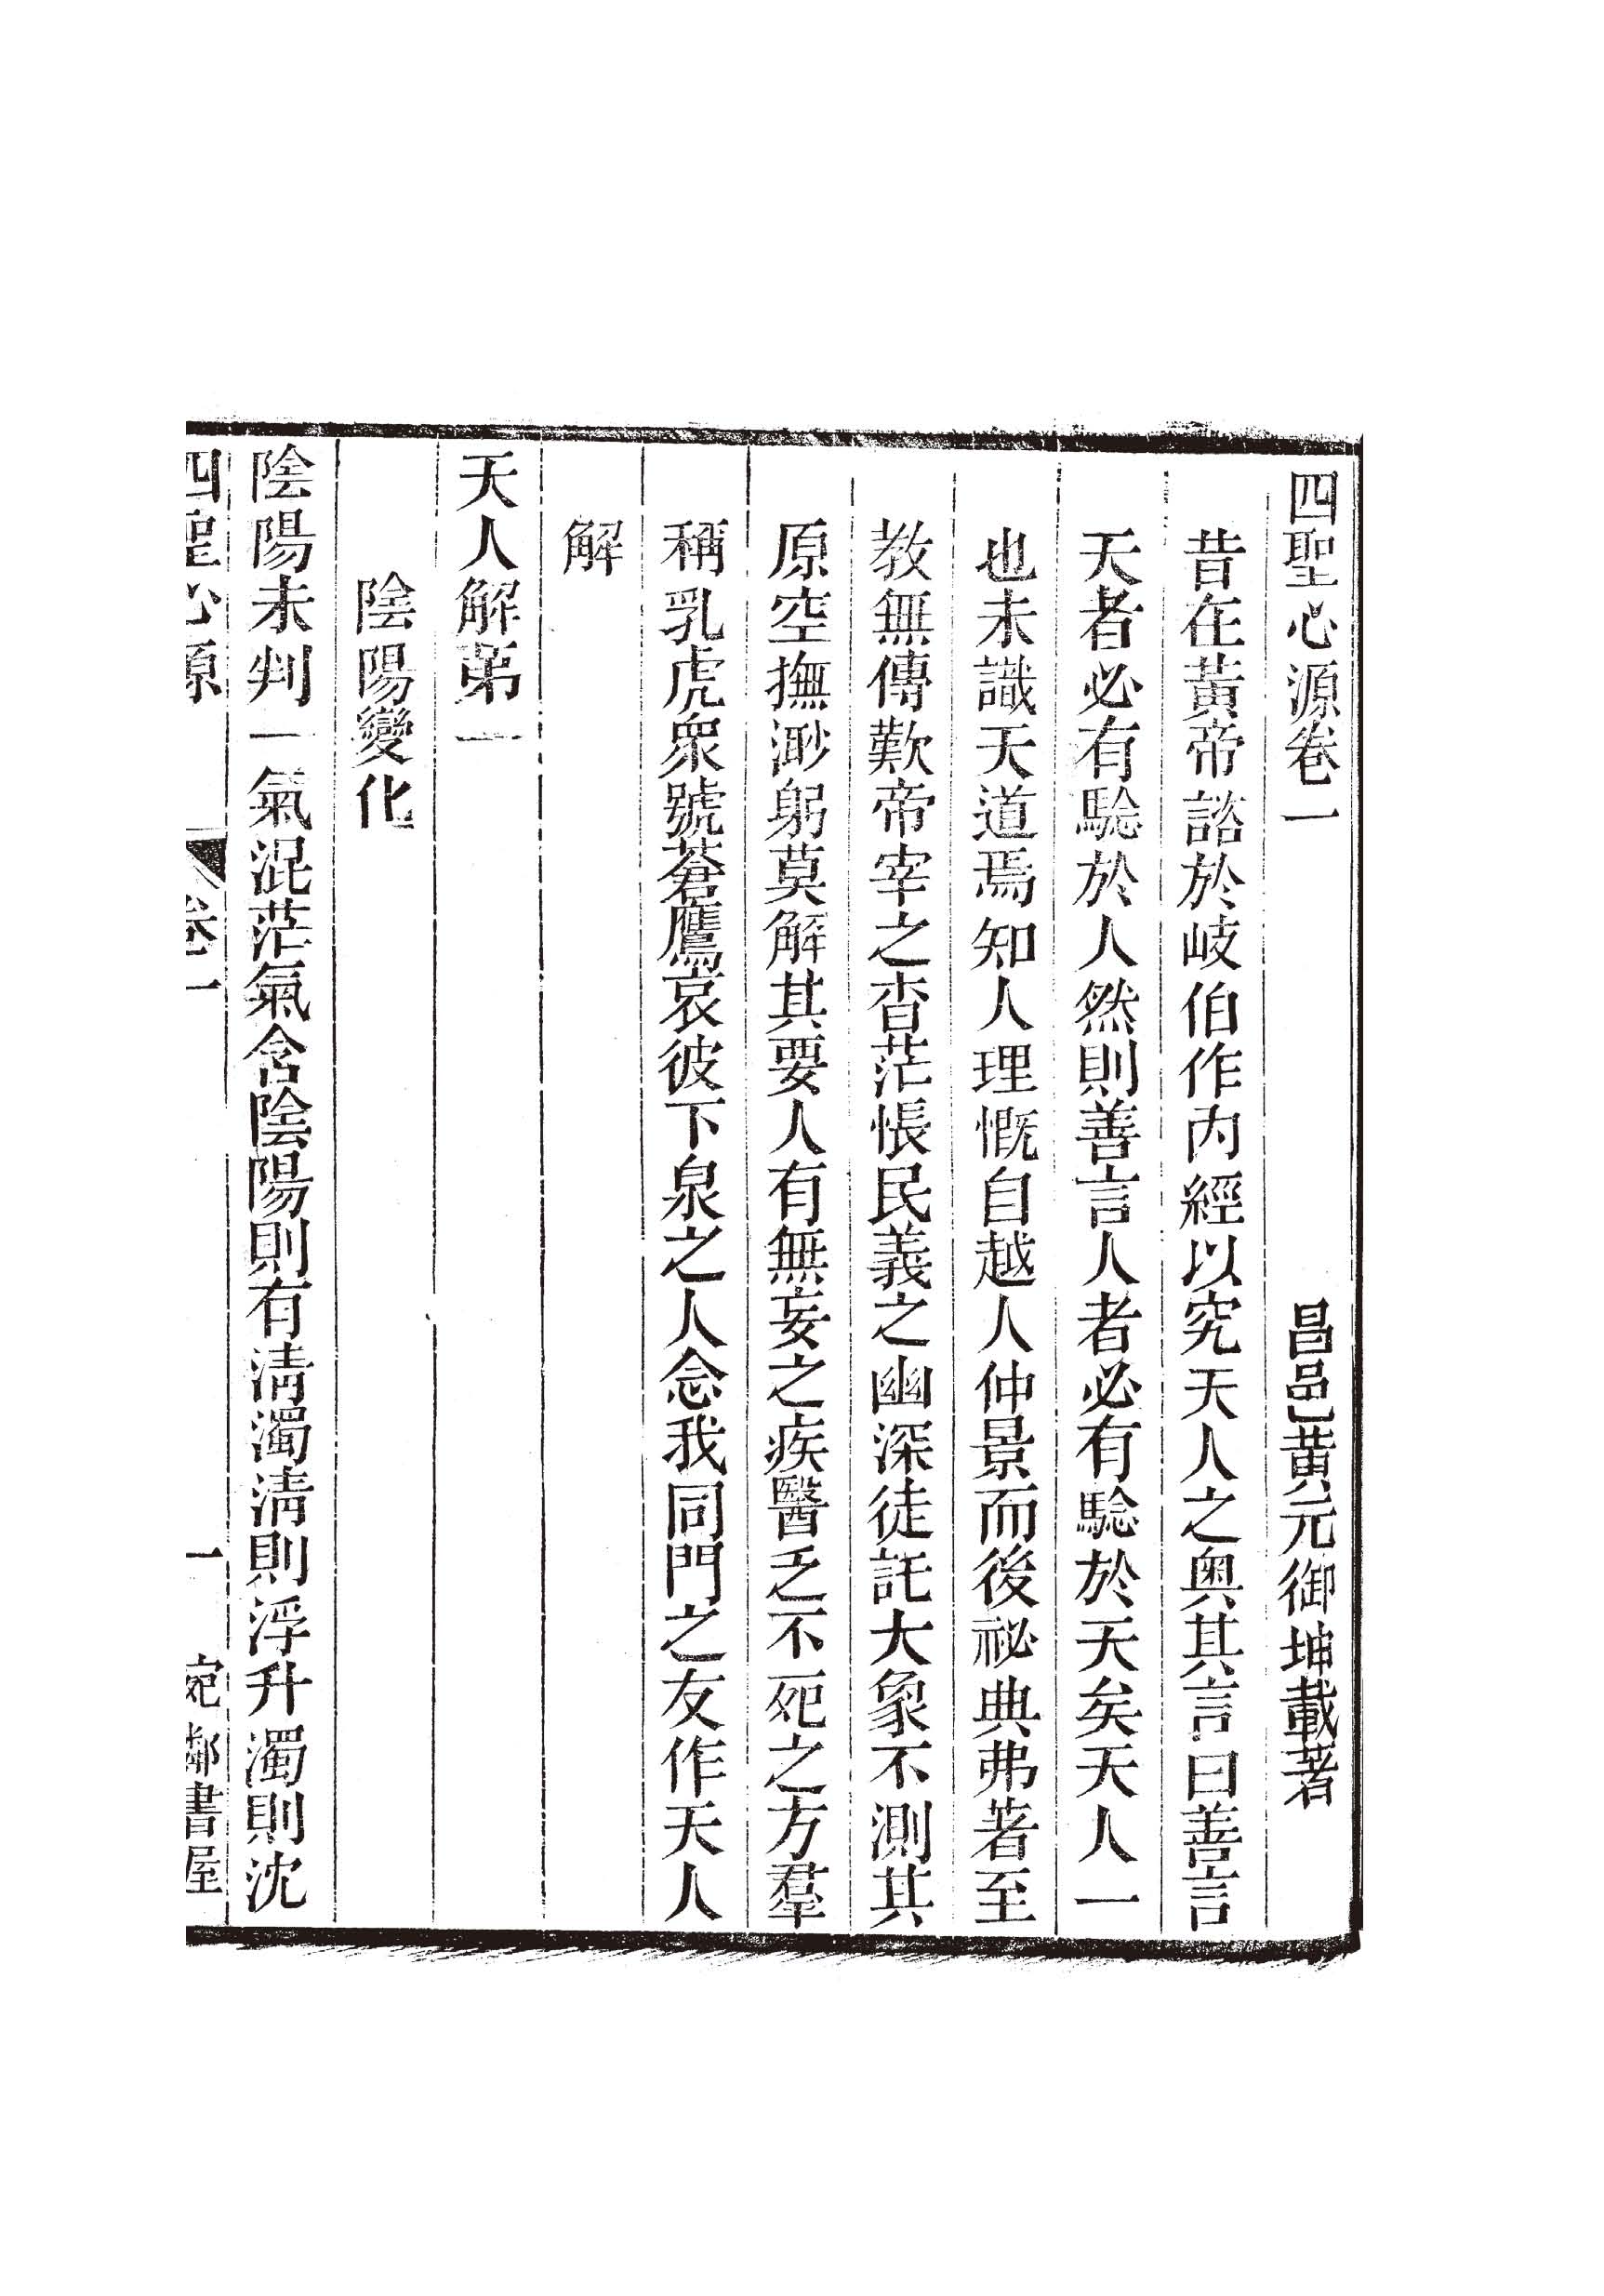 四聖心源卷一
昌邑黃元御坤載著
昔在黃帝諮於岐伯作內經以究天人之奧其言曰善言
天者必有驗於人然則善言人者必有驗於天矣天人一
也未識天道焉知人理慨自越人仲景而後祕典弗著至
教無傳歎帝宰之杳茫悵民義之幽深徒託大象不測其
原空撫渺躬莫解其要人有無妄之疾醫乏不死之方羣
稱乳虎眾號蒼鷹哀彼下泉之人念我同門之友作天人
解
天人解第一
陰陽變化
陰陽未判一氣混茫氣含陰陽則有清濁清則浮升濁則沈
四聖心源 卷一 一 宛鄰書屋